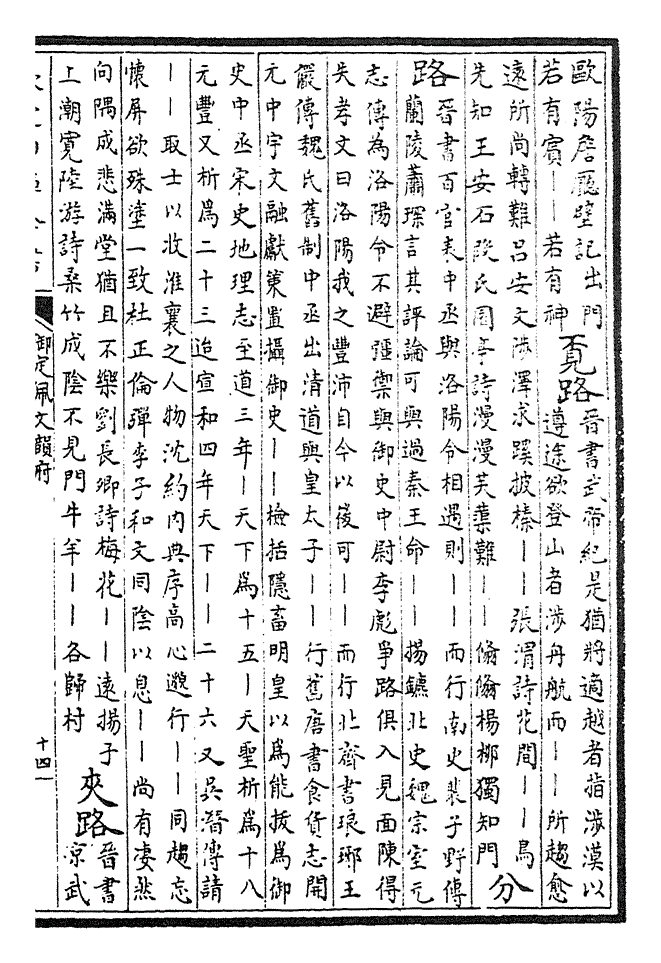 歐陽詹廳壁記出門
若有賓——若有神
覓路
晉書武帝紀是猶將適越者指涉漠以
遵途欲登山者涉舟航而——所趨愈
遠所尚轉難呂安文涉澤求蹊披榛——張渭詩花間——鳥
先知王安石段氏園亭詩漫漫芙蕖難——翛翛楊柳獨知門
分
路
晉書百官表中丞與洛陽令相遇則——而行南史裴子野傳
蘭陵蕭琛言其評論可與過秦王命——揚鑣北史魏宗室元
志傳為洛陽令不避彊禦與御史中尉李彪爭路俱入見面陳得
失孝文曰洛陽我之豐沛自今以後可——而行北齊書琅琊王
儼傳魏氏舊制中丞出清道與皇太子——行舊唐書食貨志開
元中宇文融獻策置攝御史——檢括隱畜明皇以為能拔為御
史中丞宋史地理志至道三年—天下為十五—天聖析為十八
元豐又析為二十三迨宣和四年天下——二十六 又吳晉傳請
——取士以收淮襄之人物沈約內典序高心邈行——同趨忘
懷屏欲殊塗一致杜正倫彈李子和文同陰以息——尚有悽然
向隅成悲滿堂猶且不樂劉長卿詩梅花——遠揚子
上潮寬陸游詩桑竹成陰不見門牛羊——各歸村
夾路
晉書
京武
御定佩文韻府
十四